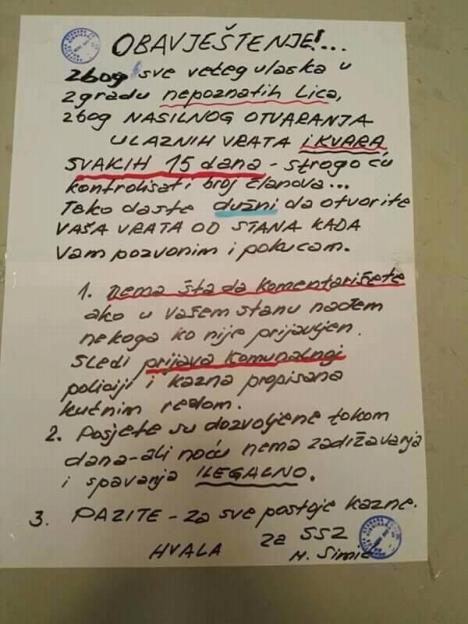 OBAVJEŠTENJE!...
zbog sve većeg ulaska u
zgradu nepoznatih Lica,
zbog NASILNOG OTVARANJA
ULAZNIH VRATA i KVARA
SVAKIH 15 dana - strogo ću
kontrolisati broj članova...
Tako da ste dužni da otvorite
VAŠA VRATA OD STANA KADA
Vam pozvonim i pokucam.
1. nema šta da komentarišete
ako u vašem stanu nađem
nekoga ko nije prijavljen.
Sledi prijava komunalnoj
policiji i kazna propisana
kućnim redom.
2. Posjete su dozvoljene tokom
dana - ali noću nema zadržavanja
i spavanja ILEGALNO.
3. PAZITE - za sve postoje kazne.
HVALA za SSZ
M. Simić